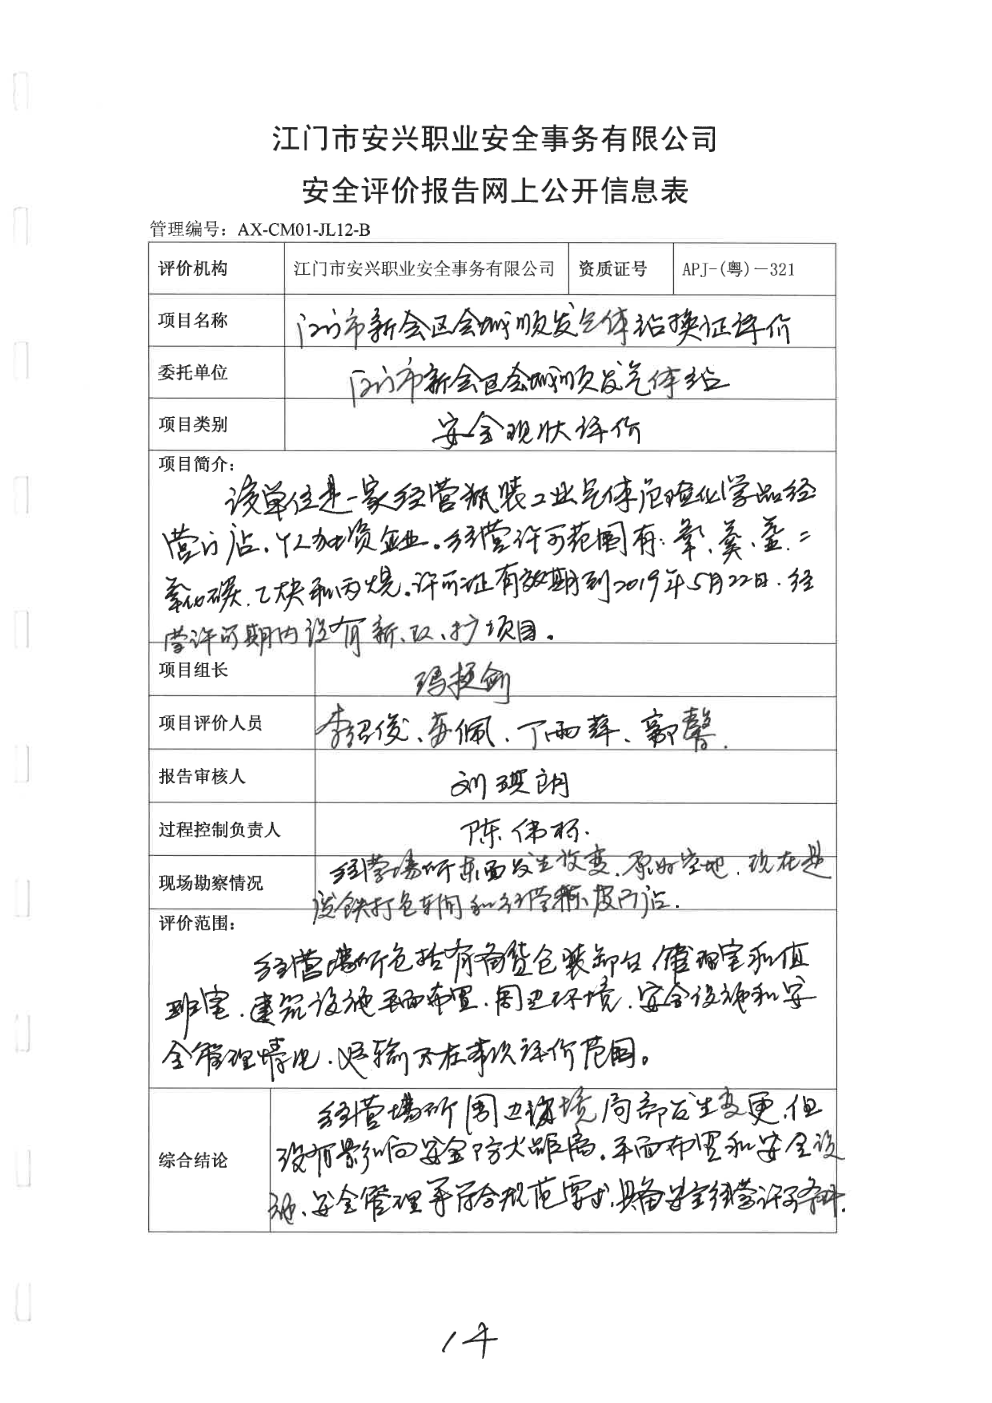 江门市安兴职业安全事务有限公司
安全评价报告网上公开信息表
管理编号：AX-CM01-JL12-B
评价机构 江门市安兴职业安全事务有限公司 资质证号 APJ-(粤)-321
项目名称 江门市新会区会城顺发气体站换证评价
委托单位 江门市新会区会城顺发气体站
项目类别 安全现状评价
项目简介：
该单位是一家经营瓶装工业气体危险化学品经
营门店，个人加资企业。经营许可范围有：氧、氮、氩、二
氧化碳、乙炔和丙烷。许可证有效期到2019年5月22日，经
营许可期内没有新、改、扩项目。
项目组长 冯挺剑
项目评价人员 李绍俊、苏佩、丁雨萍、郭馨
报告审核人 刘琪朗
过程控制负责人 陈伟
现场勘察情况 经营场所东面发生改变，原为空地，现在是
废铁打包车间和经营 门店.
评价范围：
经营场所包括有备货仓装卸台、管理室和值
班室、建筑设施平面布置、周边环境、安全设施和安
全管理情况，运输不在本次评价范围。
综合结论 经营场所周边环境局部发生变更，但
没有影响安全防火距离。平面布置和安全设
施、安全管理等符合规范要求，具备安全经营许可条件.
14